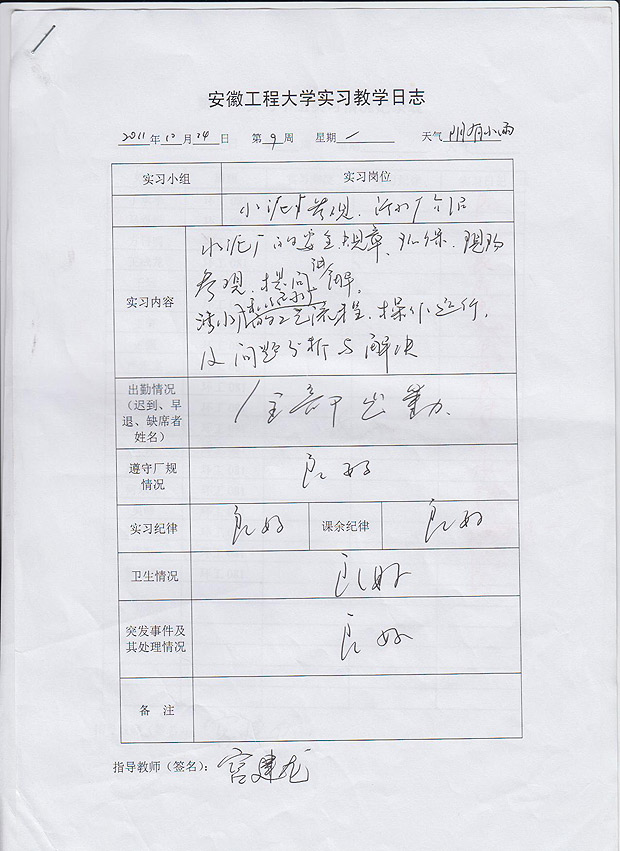 安徽工程大学实习教学日志
2011年10月24日 第9周 星期一 天气 阴有小雨
实习小组 实习岗位
水泥厂参观、污水厂介绍
实习内容
水泥厂的安全规章、环保、现场
参观、提问讲解,
的工艺流程、操作运行,
及问题分析与解决
出勤情况
(迟到、早
退、缺席者
姓名)
全部出勤.
遵守厂规
情况
良好
实习纪律 良好 课余纪律 良好
卫生情况 良好
突发事件及
其处理情况
良好
备 注
指导教师(签名):宫建龙